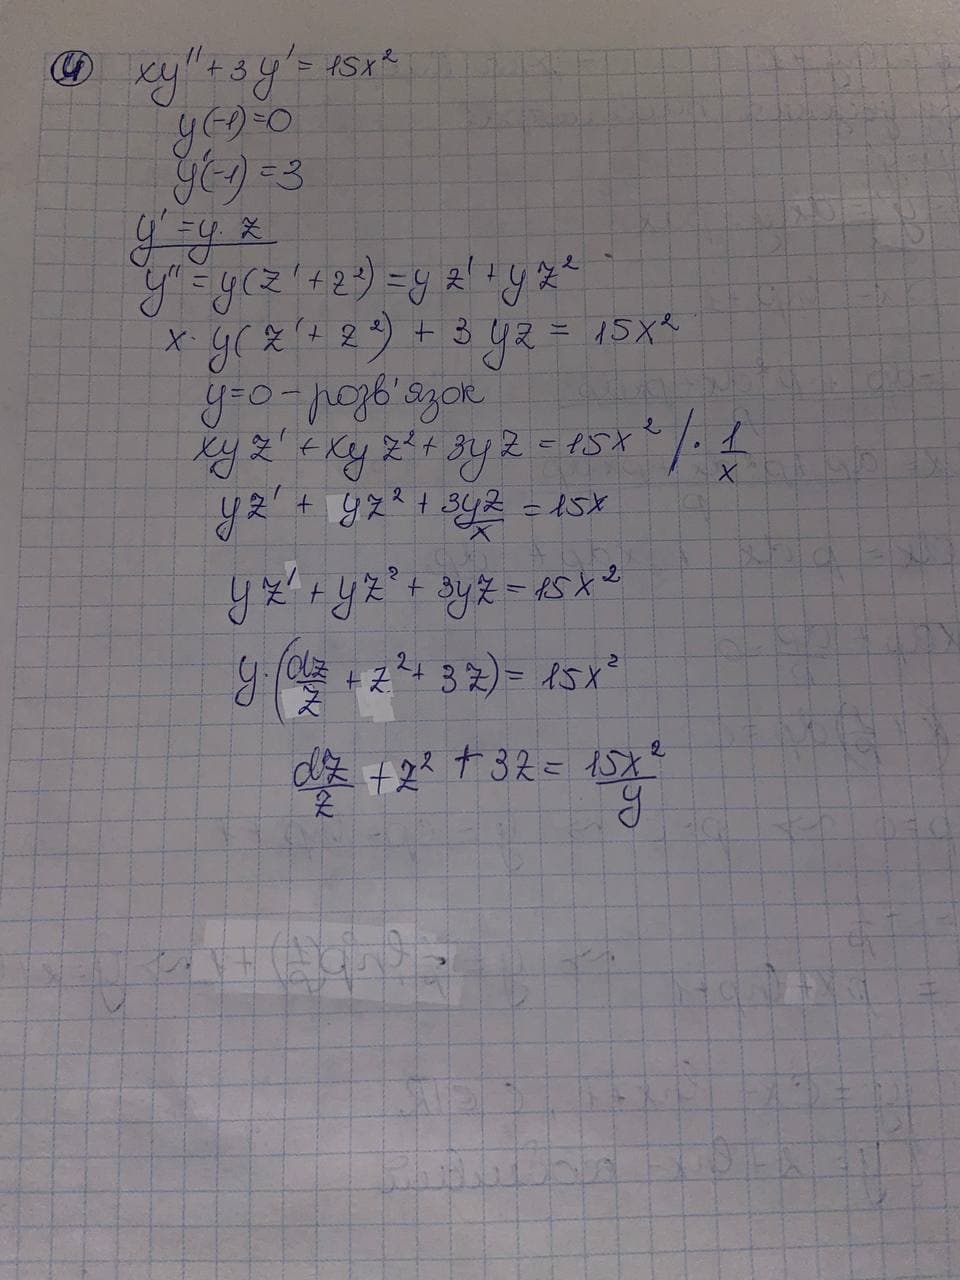 4 xy'' + 3y' = 15x²
y(-1) = 0
y'(-1) = 3
y' = y · z
y'' = y(z' + z²) = y z' + y z²
x · y(z' + z²) + 3yz = 15x²
y = 0 – розв'язок
xyz' + xyz² + 3yz = 15x² / · 1/x
yz' + yz² + 3yz/x = 15x
yz' + yz² + 3yz = 15x²
y · (dz/z + z² + 3z) = 15x²
dz/z + z² + 3z = 15x²/y